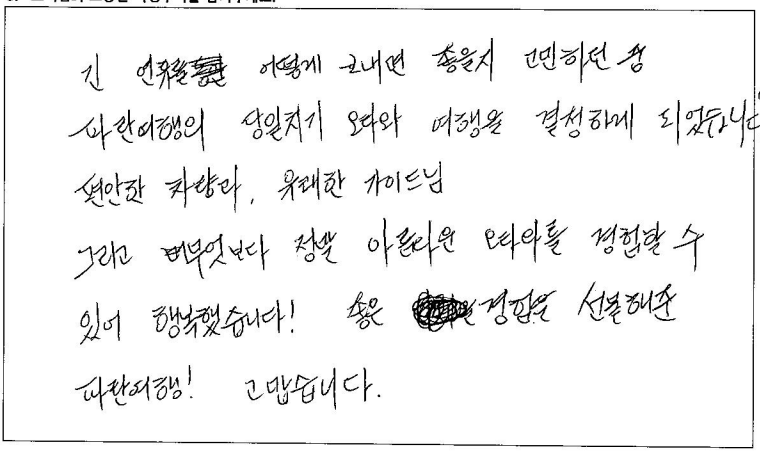 긴 연휴를 어떻게 보내면 좋을지 고민하던 참
파란여행의 당일치기 오타와 여행을 결정하게 되었습니다
편안한 차량과, 유쾌한 가이드님
그리고 무엇보다 정말 아름다운 오타와를 경험할 수
있어 행복했습니다! 좋은 경험을 선물해준
파란여행! 고맙습니다.